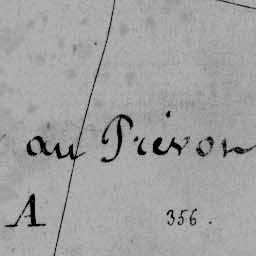 au Prévon
A
356.